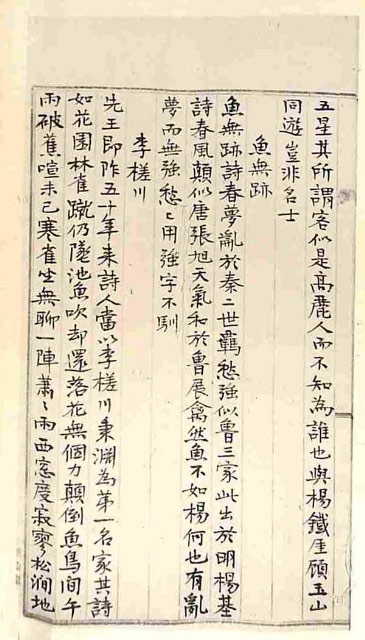 五星其所謂客似是高麗人而不知為誰也與楊鐵厓顧玉山
同遊豈非名士
魚無跡
魚無跡詩春夢亂於秦二世羈愁強似魯三家此出於明楊基
詩春風顛似唐張旭天氣和於魯展禽然魚不如楊何也有亂
夢而無強愁〻用強字不馴
李槎川
先王即阼五十年来詩人當以李槎川秉淵為第一名家其詩
如花園林雀蹴仍墜池魚吹却還落花無個力顛倒魚鳥間午
雨破蕉喧未已寒雀坐無聊一陣蕭〻雨西窓度寂寥松澗地